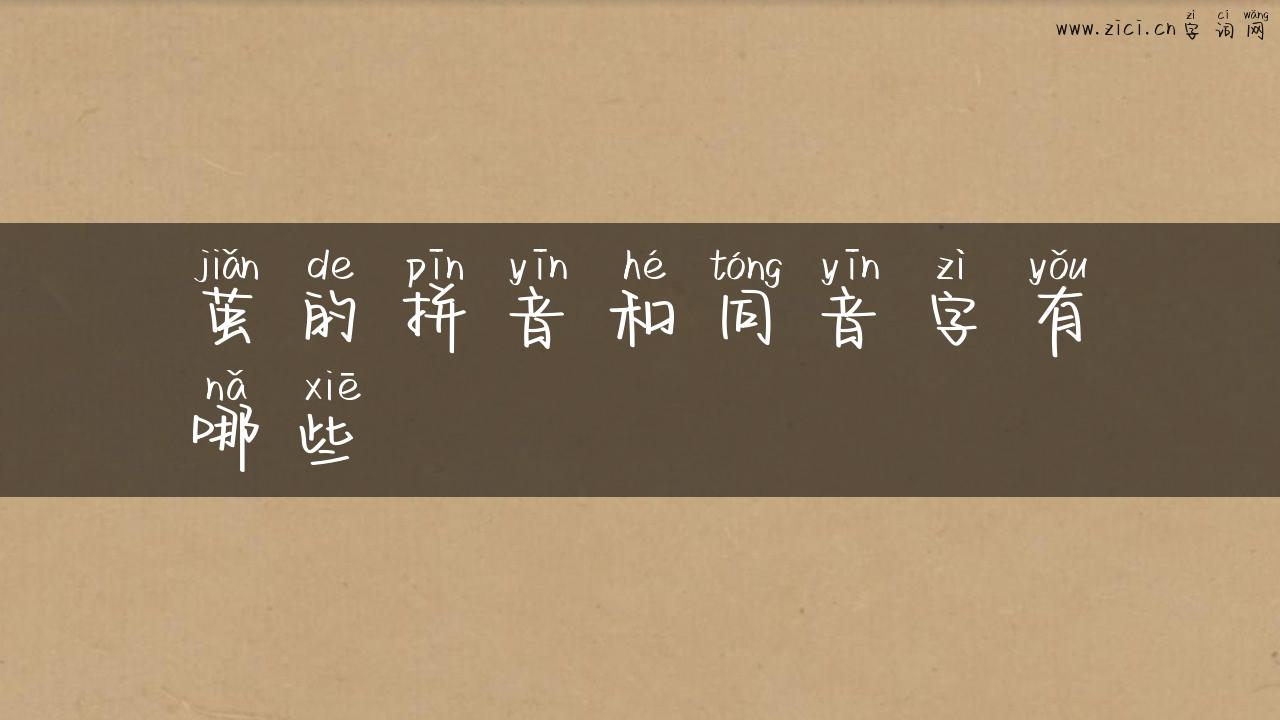 zì cí wǎng
www.zici.cn 字词网
jiǎn de pīn yīn hé tóng yīn zì yǒu
茧的拼音和同音字有
nǎ xiē
哪些